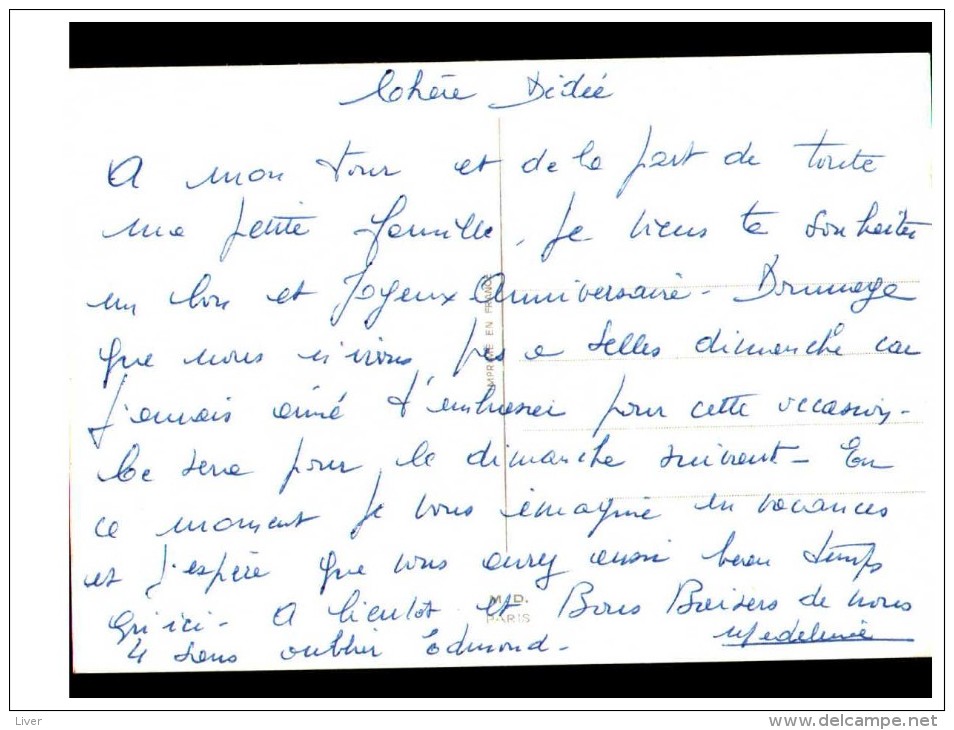 Chère Dédée
A mon tour et de la part de toute
ma petite famille, je viens te souhaiter
un bon et Joyeux Anniversaire - Dommage
que nous n'irons pas a Selles dimanche car
j'aurais aimé t'embrasser pour cette occasion -
Ce sera pour le dimanche suivant - En
ce moment je vous imagine en vacances
et j'espère que vous avez aussi beau temps
qu'ici - A bientot et Bons Baisers de nous
4 sans oublier Edmond - Madeleine
IMPRIMÉ EN FRANCE
M.D.
PARIS
Liver
delcampe.net